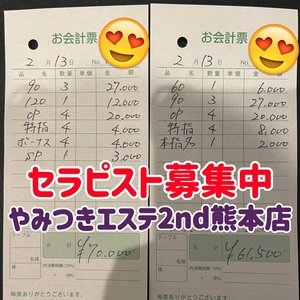 お会計票
2月13日 No.
品名 数量 単価 金額
90 3 27.000
120 1 12.000
OP 4 20.000
特指 4 4.000
ボーナス 4 4.000
SP 1 3.000
合計 ¥70.000
毎度ありがとうございます。
お会計票
2月13日
品名 数量 単価 金額
60 1 6.000
90 3 27.000
OP 4
特指 4 8.000
本指名 1 2.000
セラピスト募集中
やみつきエステ2nd熊本店
テーブル
合計 ¥61,500
毎度ありがとうございます。